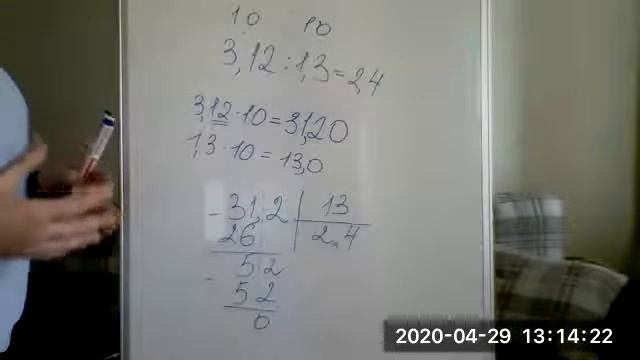 10 10
3,12 : 1,3 = 2,4
3,12 · 10 = 31,20
1,3 · 10 = 13,0
- 31,2 | 13
26 | 2,4
- 52
52
0
2020-04-29 13:14:22